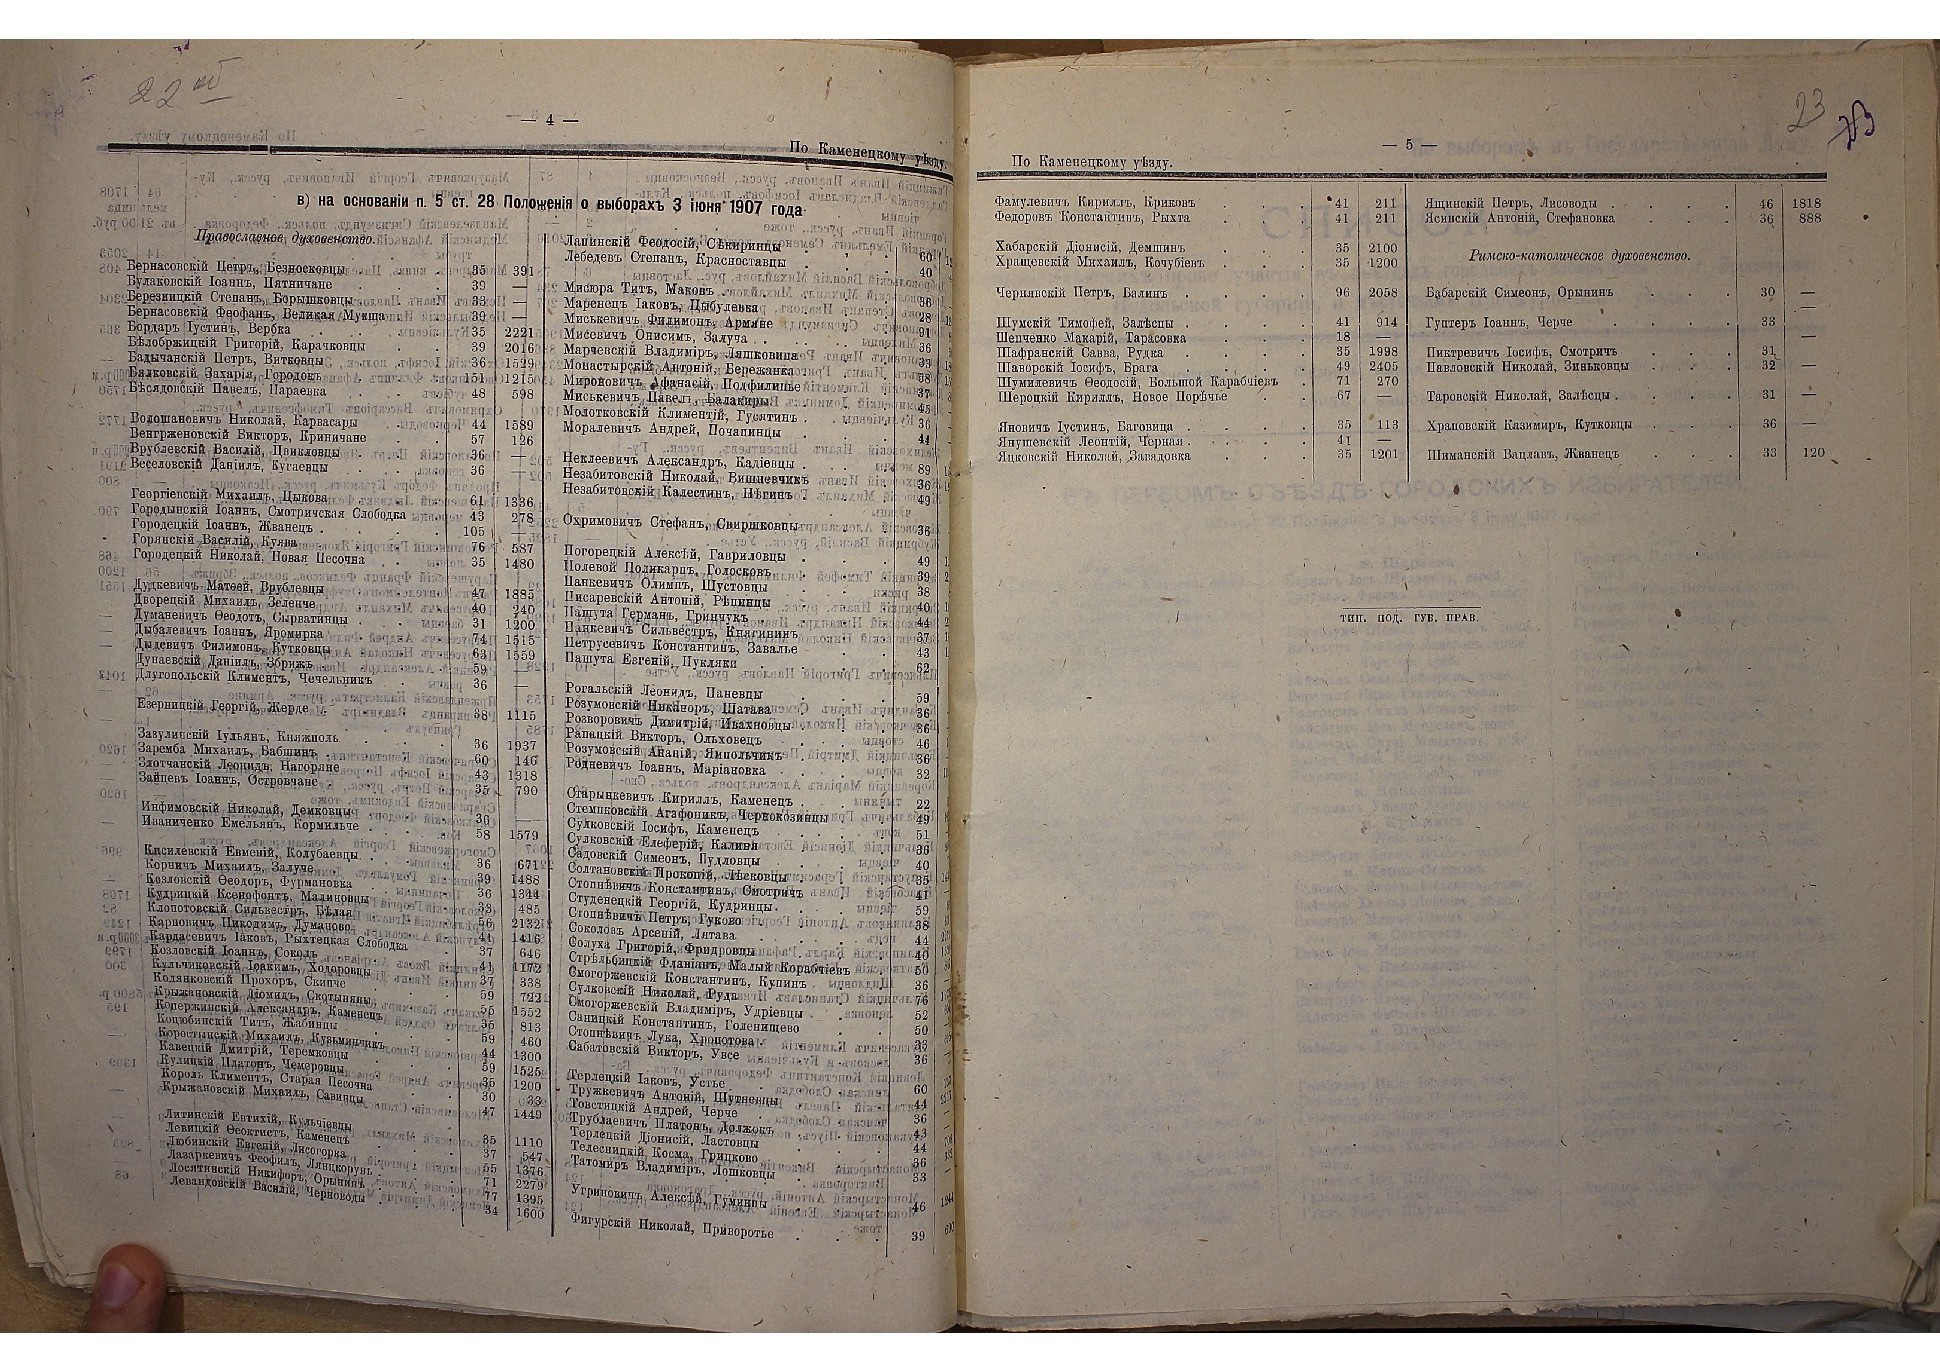 22 об
— 4 —
По Каменецкому уѣзду.
в) на основаніи п. 5 ст. 28 Положенія о выборахъ 3 іюня 1907 года
Православное духовенство.
Вернасовскій Петръ, Безносковцы 35 391
Булаковскій Іоаннъ, Пятничане 39 —
Березницкій Степанъ, Борышковцы 33 —
Вернасовскій Феофанъ, Великая Мукша 39 —
Бордаръ Іустинъ, Вербка 35 2221
Бѣлобржицкій Григорій, Карачковцы 39 2016
Бадычанскій Петръ, Витковцы 36 1529
Бялковскій Захарія, Городокъ 151 1215
Бѣсядовскій Павелъ, Параевка 48 598
Волошановичъ Николай, Карвасары 44 1589
Венгрженовскій Викторъ, Криничане 57 126
Врублевскій Василій, Цвикловцы 36 —
Веселовскій Даніилъ, Кугаевцы 36 —
Георгіевскій Михаилъ, Цыкова 61 1336
Городынскій Іоаннъ, Смотричская Слободка 43 278
Городецкій Іоаннъ, Жванецъ 105 —
Горянскій Василій, Куява 76 587
Городецкій Николай, Новая Песочна 35 1480
Дудкевичъ Матѳей, Врублевцы 47 1885
Дворецкій Михаилъ, Зеленче 40 240
Думаневичъ Ѳеодотъ, Сырватинцы 31 1200
Дыбалевичъ Іоаннъ, Яромирка 74 1515
Дыдевичъ Филимонъ, Кутковцы 63 1559
Дунаевскій Даніилъ, Збрижъ 59 —
Длугопольскій Климентъ, Чечельникъ 36 —
Езерницкій Георгій, Жерде 38 1115
Зазулинскій Іульянъ, Княжполь 36 1937
Заремба Михаилъ, Бабшинъ 60 146
Злотчанскій Леонидъ, Нагоряне 43 1318
Зайцевъ Іоаннъ, Островчане 35 790
Инфимовскій Николай, Демковцы 36 —
Иваниченко Емельянъ, Кормильче 58 1579
Кисилевскій Евменій, Колубаевцы 36 671
Корничъ Михаилъ, Залуче 39 1488
Козловскій Ѳеодоръ, Фурмановка 36 1344
Кудрицкій Ксенофонтъ, Малиновцы 33 485
Клопотовскій Сильвестръ, Бѣлая 56 2132
Карповичъ Никодимъ, Думаново 41 1416
Кардасевичъ Іаковъ, Рыхтецкая Слободка 37 646
Козловскій Іоаннъ, Соколъ 41 1172
Кульчиковскій Іоакимъ, Ходоровцы 37 338
Колянковскій Прохоръ, Скипче 59 722
Крыжановскій Діомидъ, Скотыняны 55 1552
Копержинскій Александръ, Каменецъ 35 813
Коцюбинскій Титъ, Жабинцы 59 460
Коростынскій Михаилъ, Кузьминчикъ 44 1300
Кавецкій Дмитрій, Теремковцы 59 1525
Кулицкій Платонъ, Чемеровцы 35 1200
Король Климентъ, Старая Песочна 30 33
Крыжановскій Михаилъ, Савинцы 47 1449
Литинскій Евтихій, Кульчіевцы 35 1110
Левицкій Ѳеоктистъ, Каменецъ 37 547
Любинскій Евгеній, Лисогорка 55 1376
Лазаркевичъ Феофилъ, Лянцкорунь 71 2279
Лосятинскій Никифоръ, Орынинъ 77 1395
Левандовскій Василій, Черноводы 34 1600
Лапинскій Феодосій, Сѣкиринцы 60
Лебедевъ Степанъ, Красноставцы 40
Мисюра Титъ, Маковъ 36
Маренецъ Іаковъ, Цыбулевка 28
Миськевичъ Филимонъ, Армяне 91
Мисевичъ Онисимъ, Залуча 36
Марчевскій Владиміръ, Ляшковица 33
Монастырскій Антоній, Бережанка 58
Мироновичъ Афанасій, Подфилипье 37
Миськевичъ Павелъ, Балакиры 45
Молотковскій Климентій, Гусятинъ 36
Моралевичъ Андрей, Почапинцы 44
Неклеевичъ Александръ, Кадіевцы 89
Незабитовскій Николай, Вишневчикъ 36
Незабитовскій Калестинъ, Нѣгинъ 49
Охримовичъ Стефанъ, Свиршковцы 36
Погорецкій Алексѣй, Гавриловцы 49
Полевой Поликарпъ, Голосковъ 39
Панкевичъ Олимпъ, Шустовцы 38
Писаревскій Антоній, Рѣпинцы 40
Пашута Германъ, Гринчукъ 44
Панкевичъ Сильвестръ, Княгининъ 37
Петрусевичъ Константинъ, Завалье 43
Пашута Евгеній, Пукляки 62
Рогальскій Леонидъ, Паневцы 59
Розумовскій Никаноръ, Шатава 36
Розворовичъ Димитрій, Ивахновцы 36
Рапацкій Викторъ, Ольховецъ 46
Розумовскій Ананій, Ямпольчикъ 36
Родневичъ Іоаннъ, Маріановка 32
Старынкевичъ Кириллъ, Каменецъ 22
Стемпковскій Агафоникъ, Чернокозинцы 49
Сулковскій Іосифъ, Каменецъ 51
Сулковскій Елеферій, Калиня 36
Садовскій Симеонъ, Пудловцы 40
Солтановскій Прокопій, Лѣсковцы 35
Стопнѣвичъ Константинъ, Смотричъ 41
Студенецкій Георгій, Кудринцы 59
Стопнѣвичъ Петръ, Гуково 38
Соколовъ Арсеній, Лятава 44
Солуха Григорій, Фридровцы 40
Стрѣльбицкій Флавіанъ, Малый Корабчіевъ 50
Смогоржевскій Константинъ, Купинъ 36
Сулковскій Николай, Рудка 76
Смогоржевскій Владиміръ, Удріевцы 52
Саницкій Константинъ, Голенищево 50
Стопнѣвичъ Лука, Хропотова 33
Сабатовскій Викторъ, Увсе 36
Терлецкій Іаковъ, Устье 60
Тружкевичъ Антоній, Шутневцы 44
Товстицкій Андрей, Черче 36
Трублаевичъ Платонъ, Должокъ 43
Терлецкій Діонисій, Ластовцы 44
Телесницкій Косма, Грицково 36
Татомиръ Владиміръ, Лошковцы 33
Угриновичъ Алексѣй, Гуминцы 46
Фигурскій Николай, Приворотье 39
23
23
— 5 —
По Каменецкому уѣзду.
Фамулевичъ Кириллъ, Криковъ 41 211
Федоровъ Константинъ, Рыхта 41 211
Хабарскій Діонисій, Демшинъ 35 2100
Хращевскій Михаилъ, Кочубіевъ 35 1200
Чернявскій Петръ, Балинъ 96 2058
Шумскій Тимофей, Залѣсцы 41 914
Шепченко Макарій, Тарасовка 18 —
Шафранскій Савва, Рудка 35 1998
Шаворскій Іосифъ, Врага 49 2405
Шумилевичъ Ѳеодосій, Большой Карабчіевъ 71 270
Шероцкій Кириллъ, Новое Порѣчье 67 —
Яновичъ Іустинъ, Баговица 35 113
Янушевскій Леонтій, Черная 41 —
Яцковскій Николай, Завадовка 35 1201
Ящинскій Петръ, Лисоводы 46 1818
Ясинскій Антоній, Стефановка 36 888
Римско-католическое духовенство.
Бабарскій Симеонъ, Орынинъ 30 —
Гунтеръ Іоаннъ, Черче 33 —
Пиктревичъ Іосифъ, Смотричъ 31 —
Павловскій Николай, Зиньковцы 32 —
Таровскій Николай, Залѣсцы 31 —
Храновскій Казимиръ, Кутковцы 36 —
Шиманскій Вацлавъ, Жванецъ 33 120
ТИП. ПОД. ГУБ. ПРАВ.